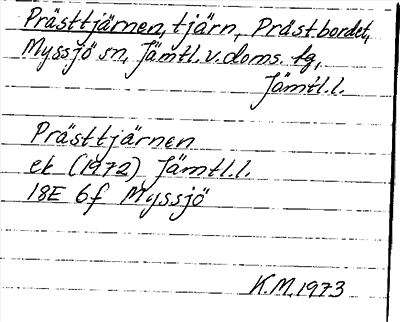 Prästtjärnen, tjärn, Prästbordet,
Myssjö sn, Jämtl. v. doms. tg,
Jämtl.l.
Prästtjärnen
ek (1972) Jämtl.l.
18E 6f Myssjö
K.M. 1973